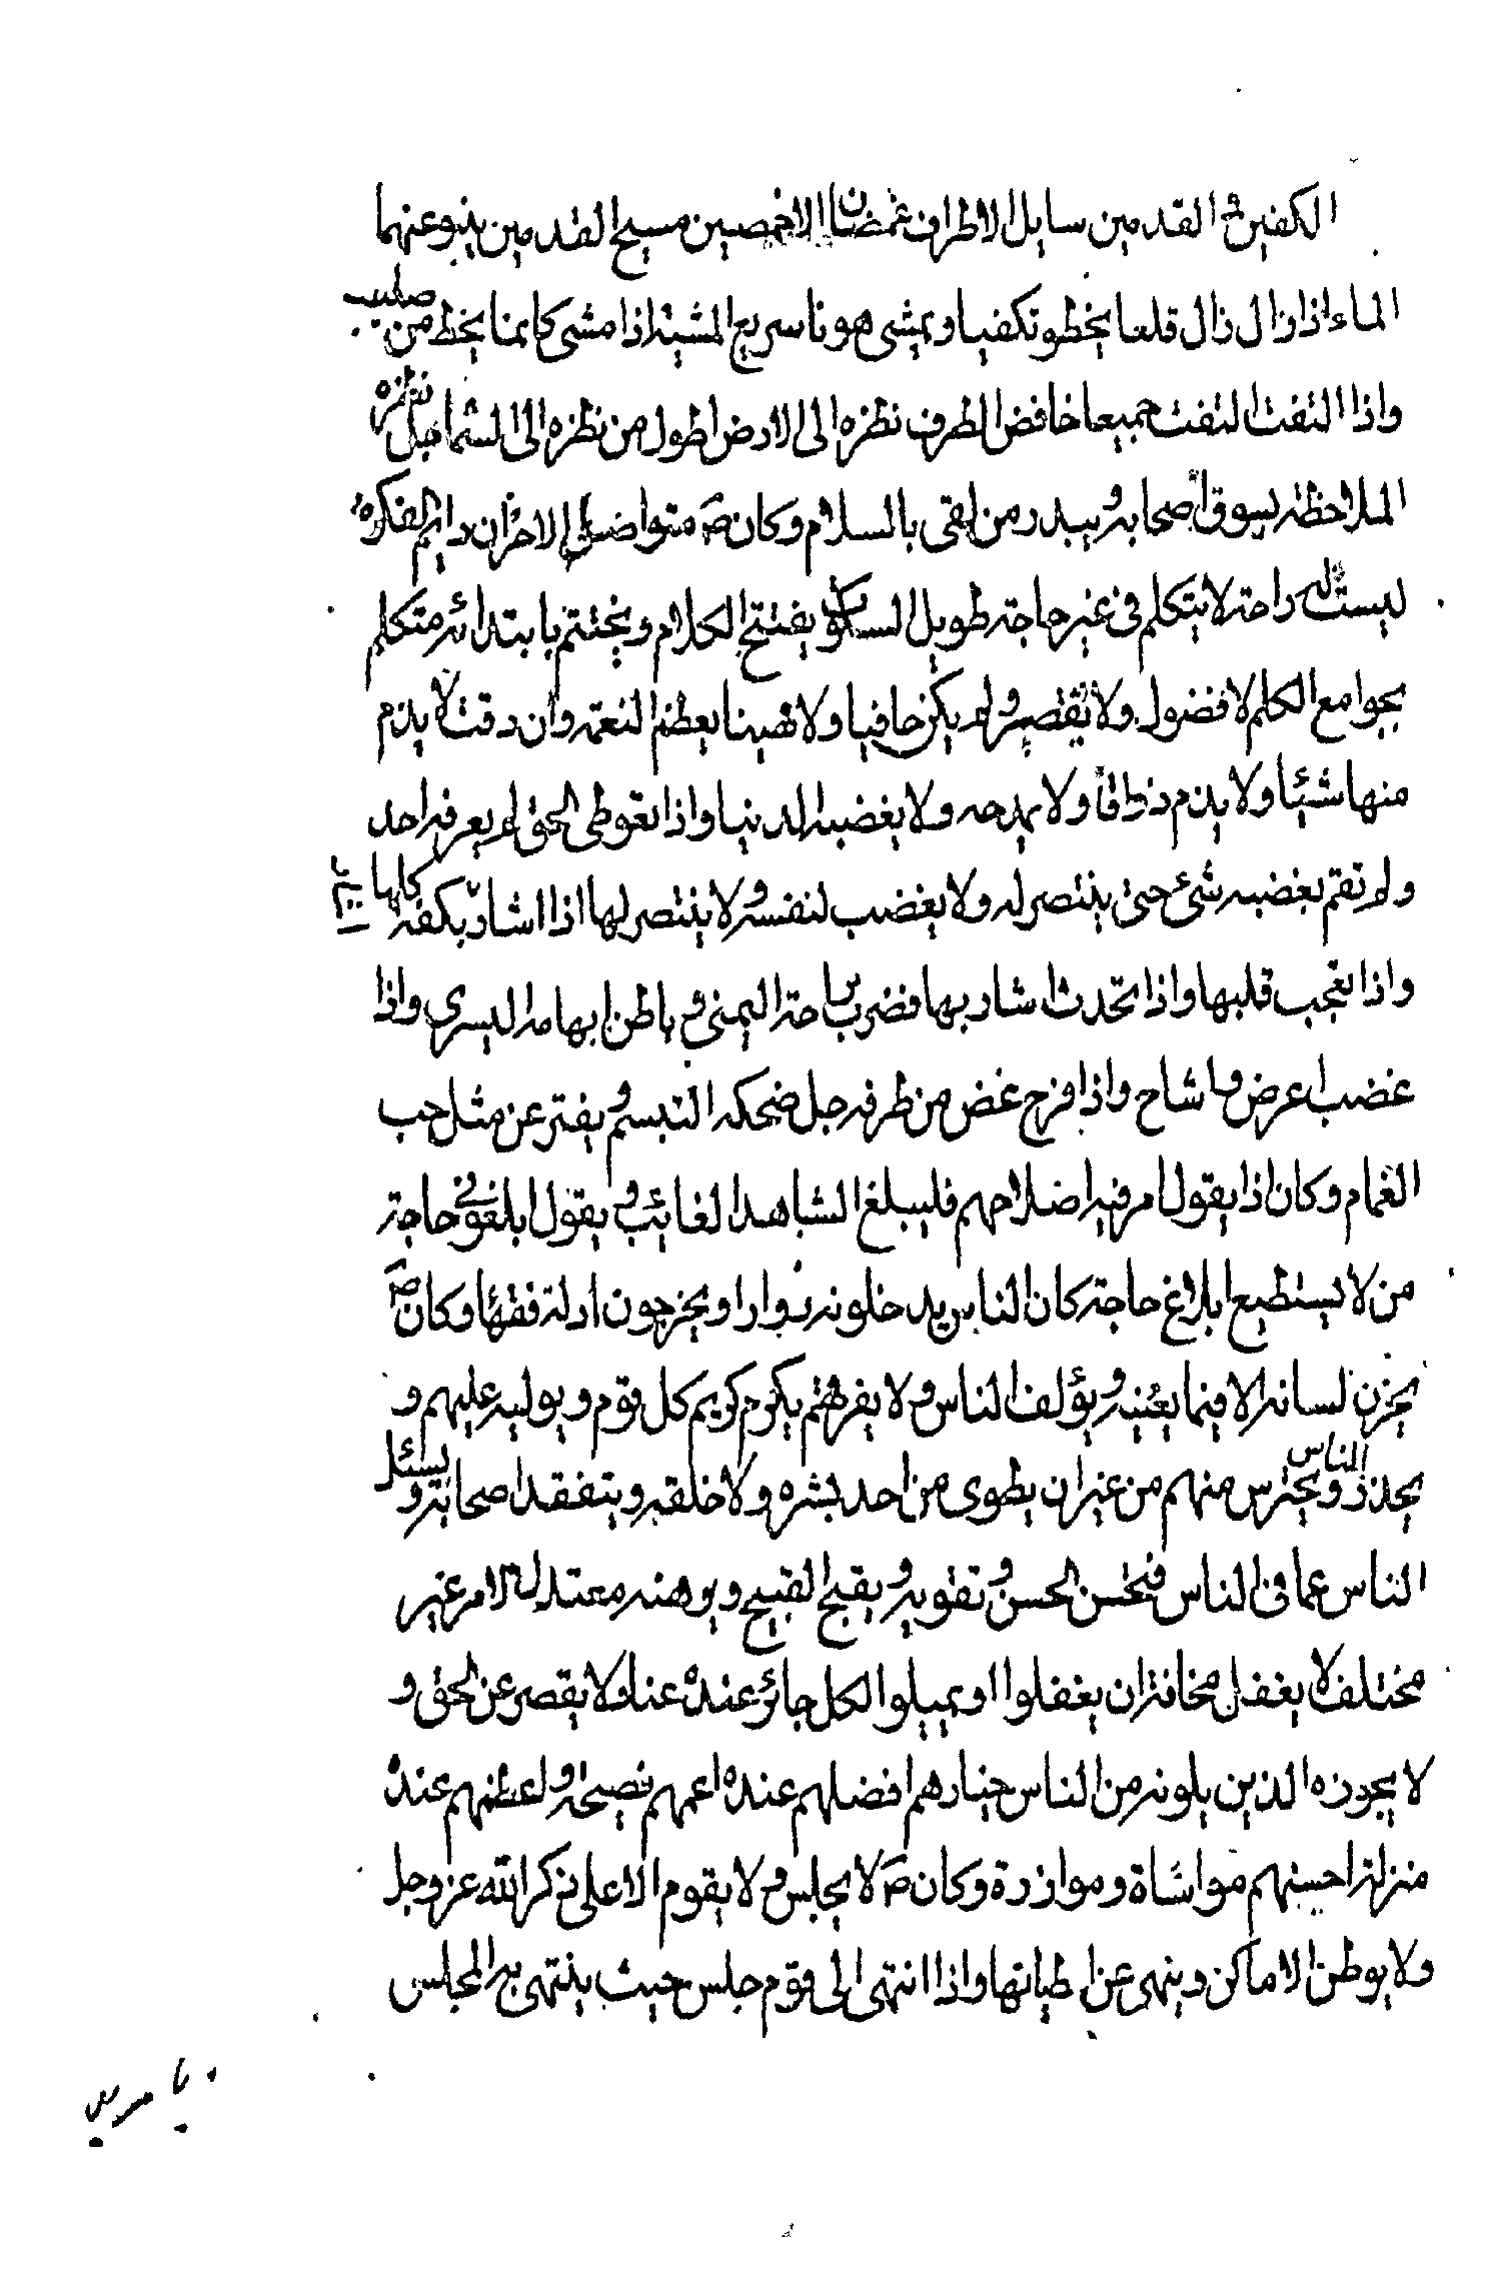 الكفين و القدمين سايل الاطراف خمضان الاخمصين مسيح القدمين ينبو عنهما
الماء اذا زال زال قلعا يخطو تكفيا و يمشى هونا سريع المشية اذا مشى كانما ينحط من صليب
واذا التفت التفت جميعا خافض الطرف نظره الى الارض اطول من نظره الى السماء جل نظره
الملاحظة يسوق اصحابه و يبدر من لقى بالسلام و كان ص متواصل الاحزان دايم الفكرة
ليست له راحة لا يتكلم فى غير حاجة طويل السكوت يفتتح الكلام و يختتم بابتدائه متكلم
بجوامع الكلم لا فضول ولا تقصير و لم يكن جافيا ولا مهينا يعظم النعمة وان دقت لا يذم
منها شيئا ولا يذم ذواقا ولا يمدحه ولا يغضبه الدنيا واذا تعوطى الحق لم يعرفه احد
ولم تقم بغضبه شئ حتى ينتصر له ولا يغضب لنفسه و لا ينتصر لها اذا اشار بكفه كلها
واذا تعجب قلبها واذا تحدث اشار بها فضرب براحته اليمنى و باطن ابهامه اليسرى واذا
غضب اعرض و اشاح واذا فرح غض من طرفه جل ضحكه التبسم و يفتر عن مثل حب
الغمام و كان اذا يقول امر فيه اصلاحهم فليبلغ الشاهد الغائب و يقول ابلغونى حاجة
من لا يستطيع ابلاغ حاجته كان الناس يدخلونه زوارا و يخرجون ادلة فقهاء و كان ص
يخزن لسانه الا فيما يعنيه و يؤلف الناس و لا يفرقهم يكرم كريم كل قوم و يوليه عليهم و
يحذر الناس و يحترس منهم من غير ان يطوى من احد بشره ولا خلقه و يتفقد اصحابه و يسئل
الناس عما فى الناس فيحسن الحسن و تقويه و يقبح القبيح و يوهنه معتدل الامر غير
مختلف لا يغفل مخافة ان يغفلوا او يميلوا لكل جائز عنده عنا ولا يقصر عن الحق و
لا يجوزه الذين يلونه من الناس خيارهم افضلهم عنده اعمهم نصيحة و اعظمهم عنده
منزلة احسنهم مواساة و موازرة و كان ص لا يجلس و لا يقوم الا على ذكر الله عز وجل
ولا يوطن الاماكن و ينهى عن ايطانها واذا انتهى الى قوم جلس حيث ينتهى به المجلس